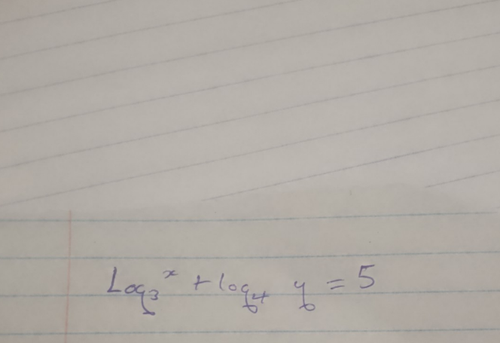 Log₃ˣ + log₄ y = 5